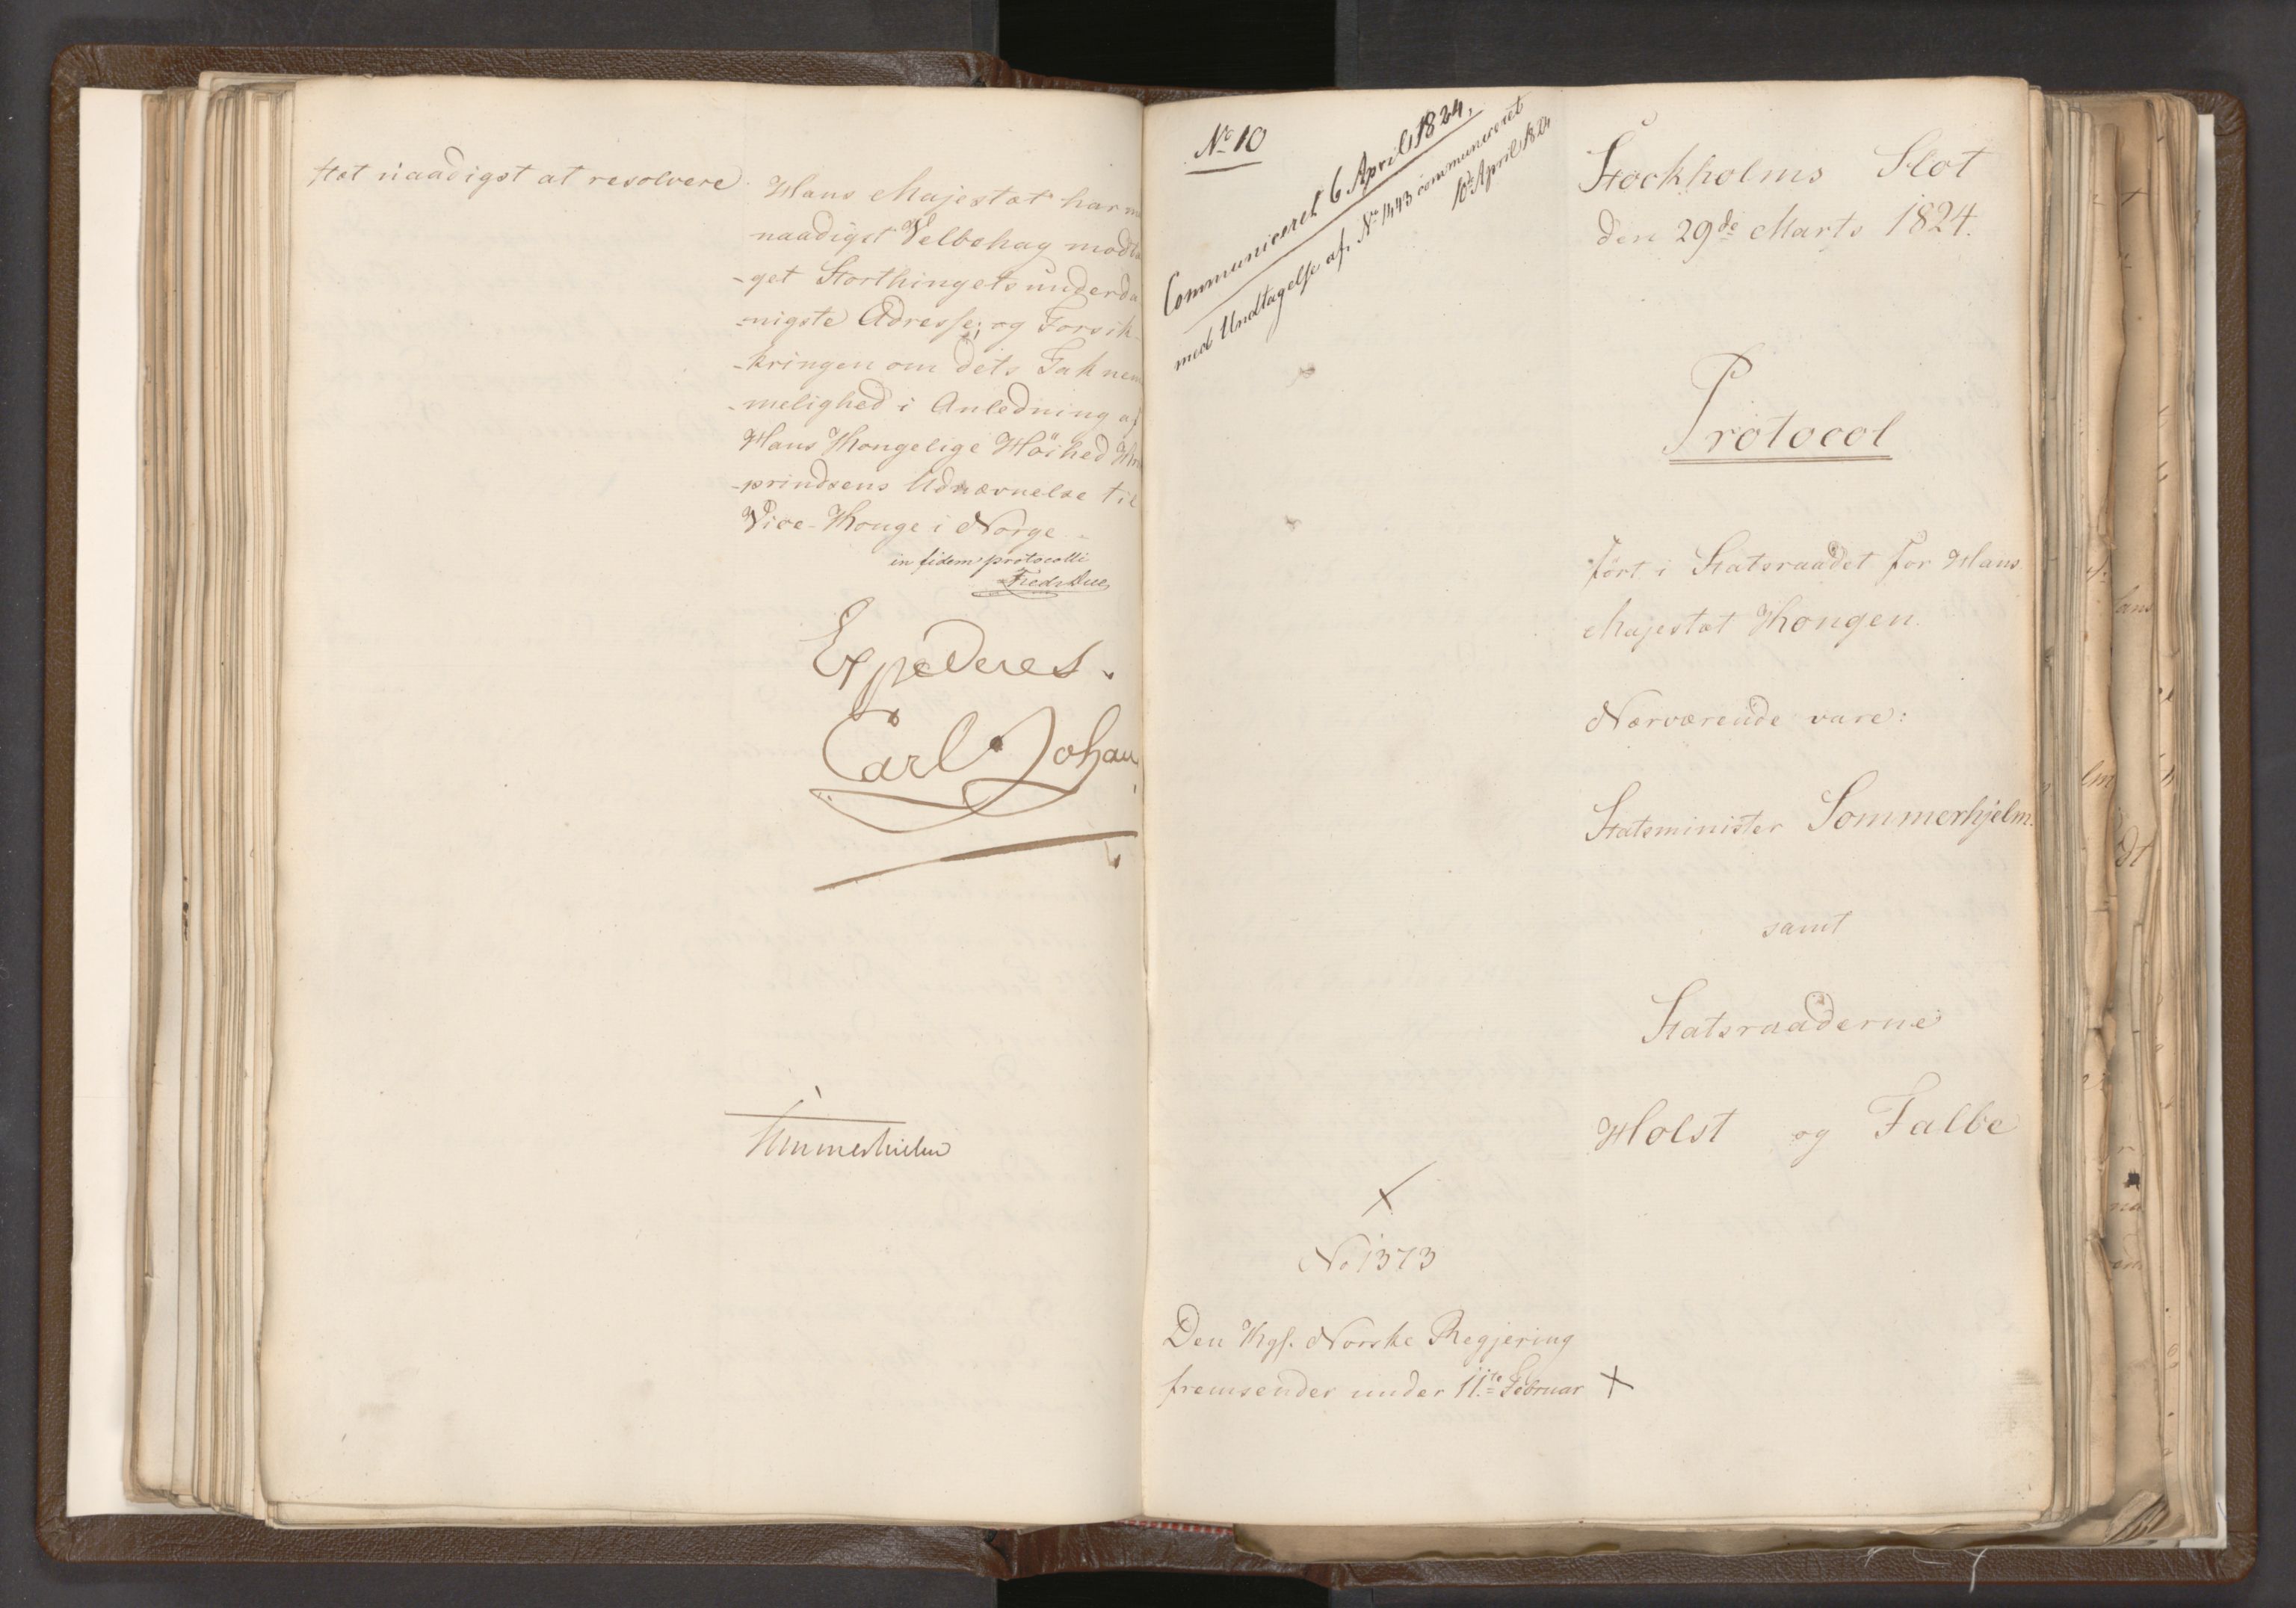 tæt naadigst at resolvere.
Hans Majestæt har m
naadigst Velbehag modta
-get Storthingets underda
-nigste Adresse, og Forsik-
-kringen om dets Taknem
-melighed i Anledning af
Hans Kongelige Höihed Kro
-prindsens Udnævnelse til
Vice-Konge i Norge.
in fidem protocolli
Fredr Due
Expederes.
Carl Johan
Sommerhielm
No 10
Communiceret 6 April 1824,
med Undtagelse af No 1443 communiceret
10de April 1824
Stockholms Slot
den 29de Marts 1824.
Protocol
ført i Statsraadet for Hans
Majestæt Kongen
Nærværende vare:
Statsminister Sommerhjelm.
samt
Statsraaderne
Holst og Falbe
No 1373
Den Kgl. Norske Regjering
fremsender under 11.te Februar